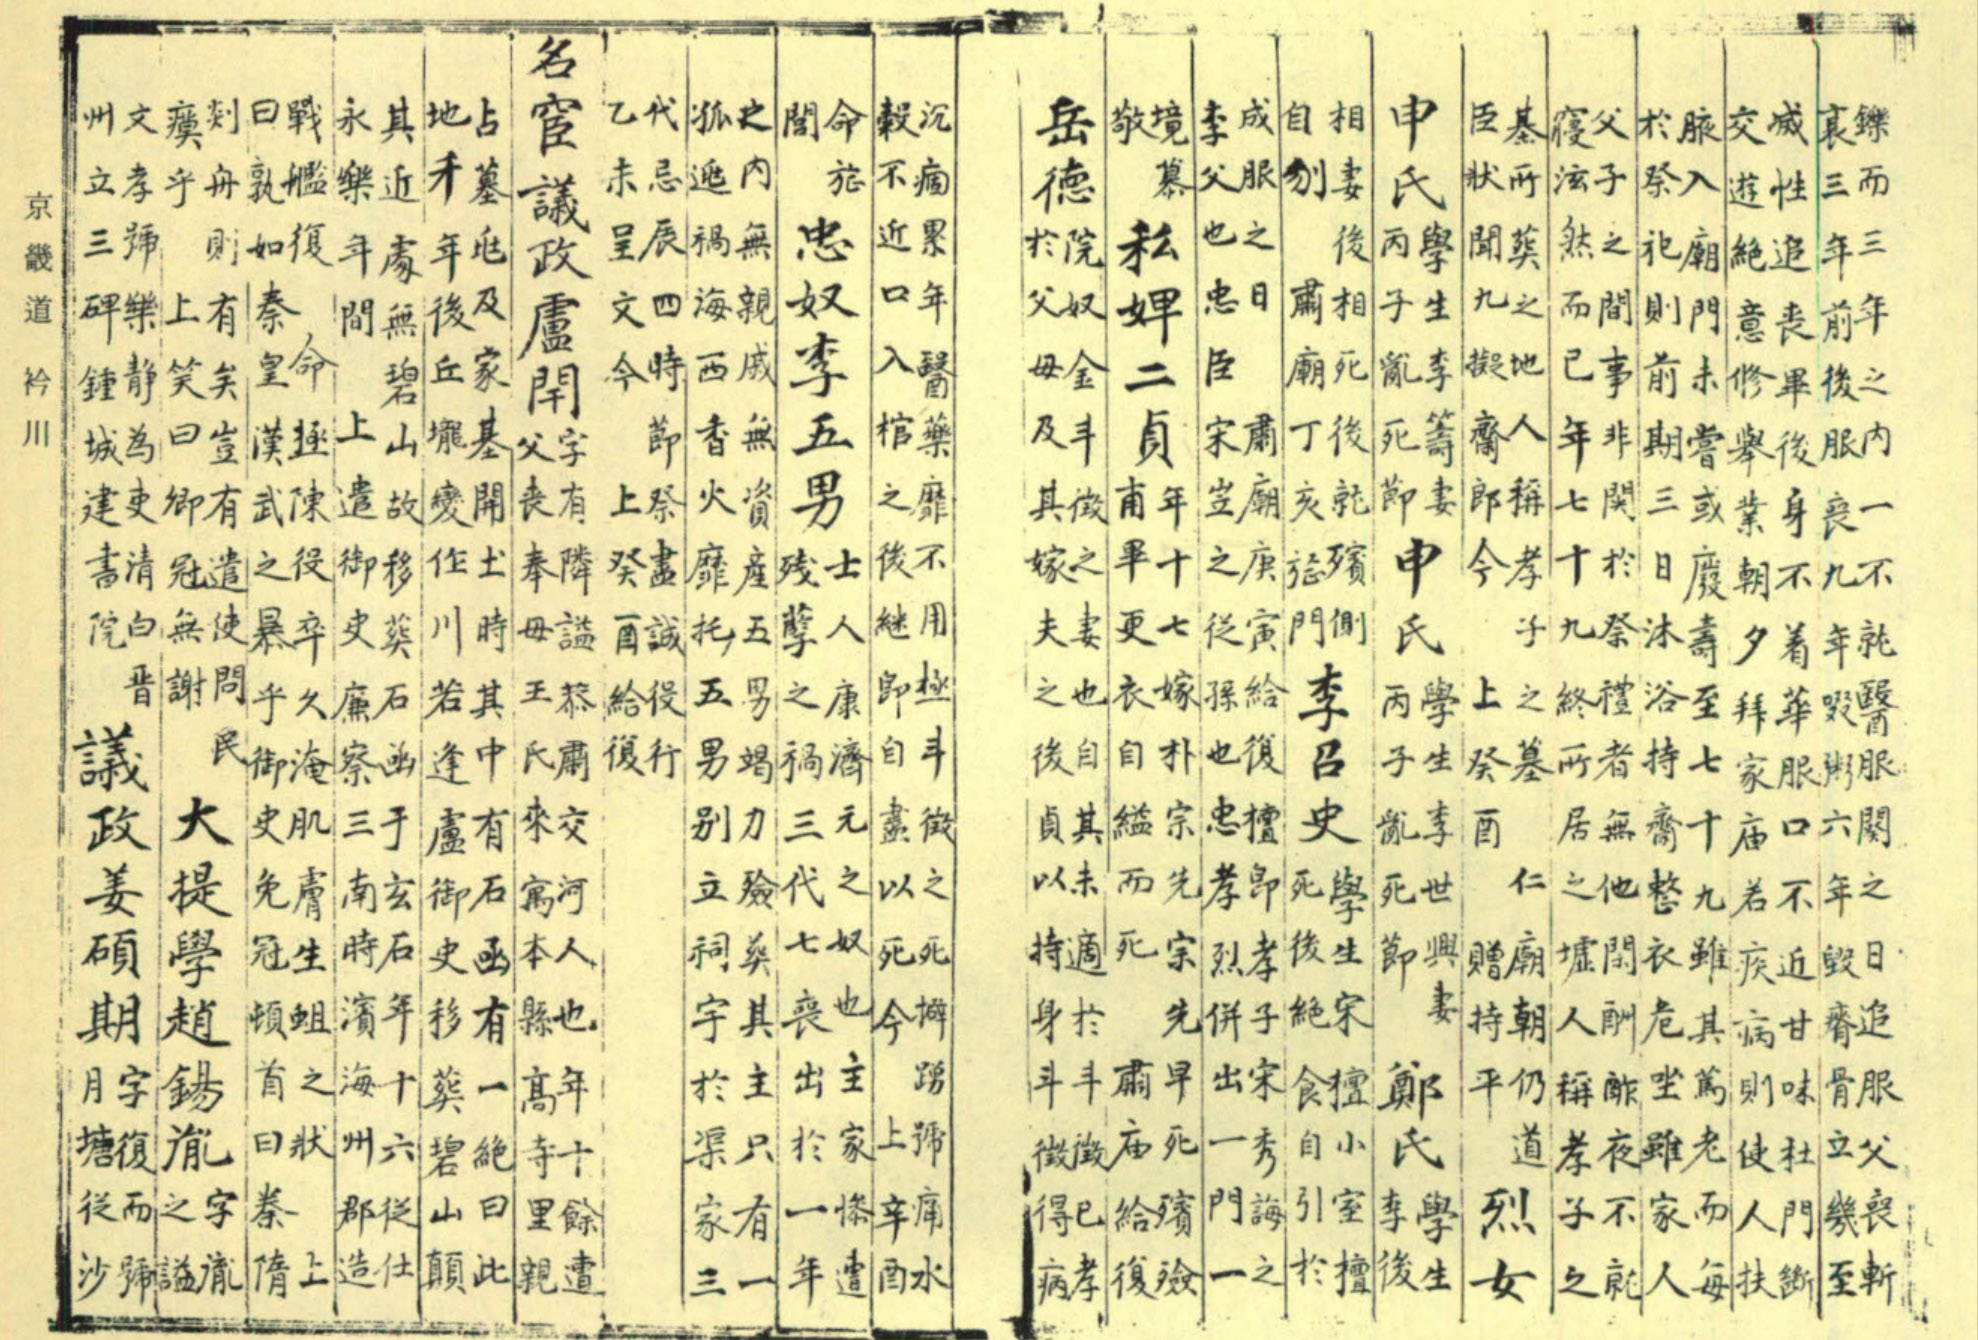 鑠而三年之內一不就醫服闋之日追服父喪斬
衰三年前後服喪九年啜粥六年毁瘠骨立幾至
滅性追喪畢後身不着華服口不近甘味杜門斷
交遊絶意修擧業朝夕拜家庙若疾病則使人扶
腋入廟門未嘗或廢壽至七十九雖其篤老而每
於祭祀則前期三日沐浴持齋整衣危坐雖家人
父子之間事非関於祭禮者無他閑酬酢夜不就
寢泫然而已年七十九終所居之墟人稱孝子之
墓所葬之地人稱孝子之墓 仁廟朝仍道
臣狀聞九擬齋郎今 上癸酉 贈持平
烈女
申氏
學生李籌妻
丙子亂死節
申氏
學生李世興妻
丙子亂死節
鄭氏
學生
李後
相妻後相死後就殯側
自刎 肅廟丁亥㫌門
李召史
學生宋檀小室檀
死後絶食自引於
成服之日 肅廟庚寅給復檀卽孝子宋秀誨之
李父也忠臣宋岦之從孫也忠孝烈併出一門一
境慕
敬
私婢二貞
年十七嫁朴宗先宗先早死殯殮
甫畢更衣自縊而死 肅庙給復
岳德
院奴金斗徵之妻也自其未適於斗徵已孝
於父母及其嫁夫之後貞以持身斗徵得病
沉痼累年醫藥靡不用極斗徵之死擗踴號痛水
糓不近口入棺之後継卽自盡以死今 上辛酉
命㫌
閭
忠奴李五男
士人康濟元之奴也主家慘遭
殘孽之禍三代七喪出於一年
之內無親戚無資産五男竭力殮葬其主只有一
孤遯禍海西香火靡托五男别立祠宇於渠家三
代忌辰四時節祭盡誠役行
乙未呈文今 上癸酉給復
名宦議政盧閈
字有隣謚恭肅交河人也年十餘遭
父喪奉母王氏來寓本縣高寺里親
占墓地及家基開土時其中有石函有一絶曰此
地千年後丘壠變作川若逢盧御史移葬碧山顚
其近處無碧山故移葬石函于玄石年十六從仕
永樂年間 上遣御史廉察三南時濱海州郡造
戰艦復 命極陳役卒久淹肌膚生蛆之狀 上
曰孰如秦皇漢武之暴乎御史免冠頓首曰秦隋
剡舟則有矣豈有遣使問民
瘼乎 上笑曰卿冠無謝
大提學趙錫胤
字胤
之謚
文孝號樂静為吏清白晋
州立三碑鍾城建書院
議政姜碩期
字復而號
月塘從沙
京畿道 衿川